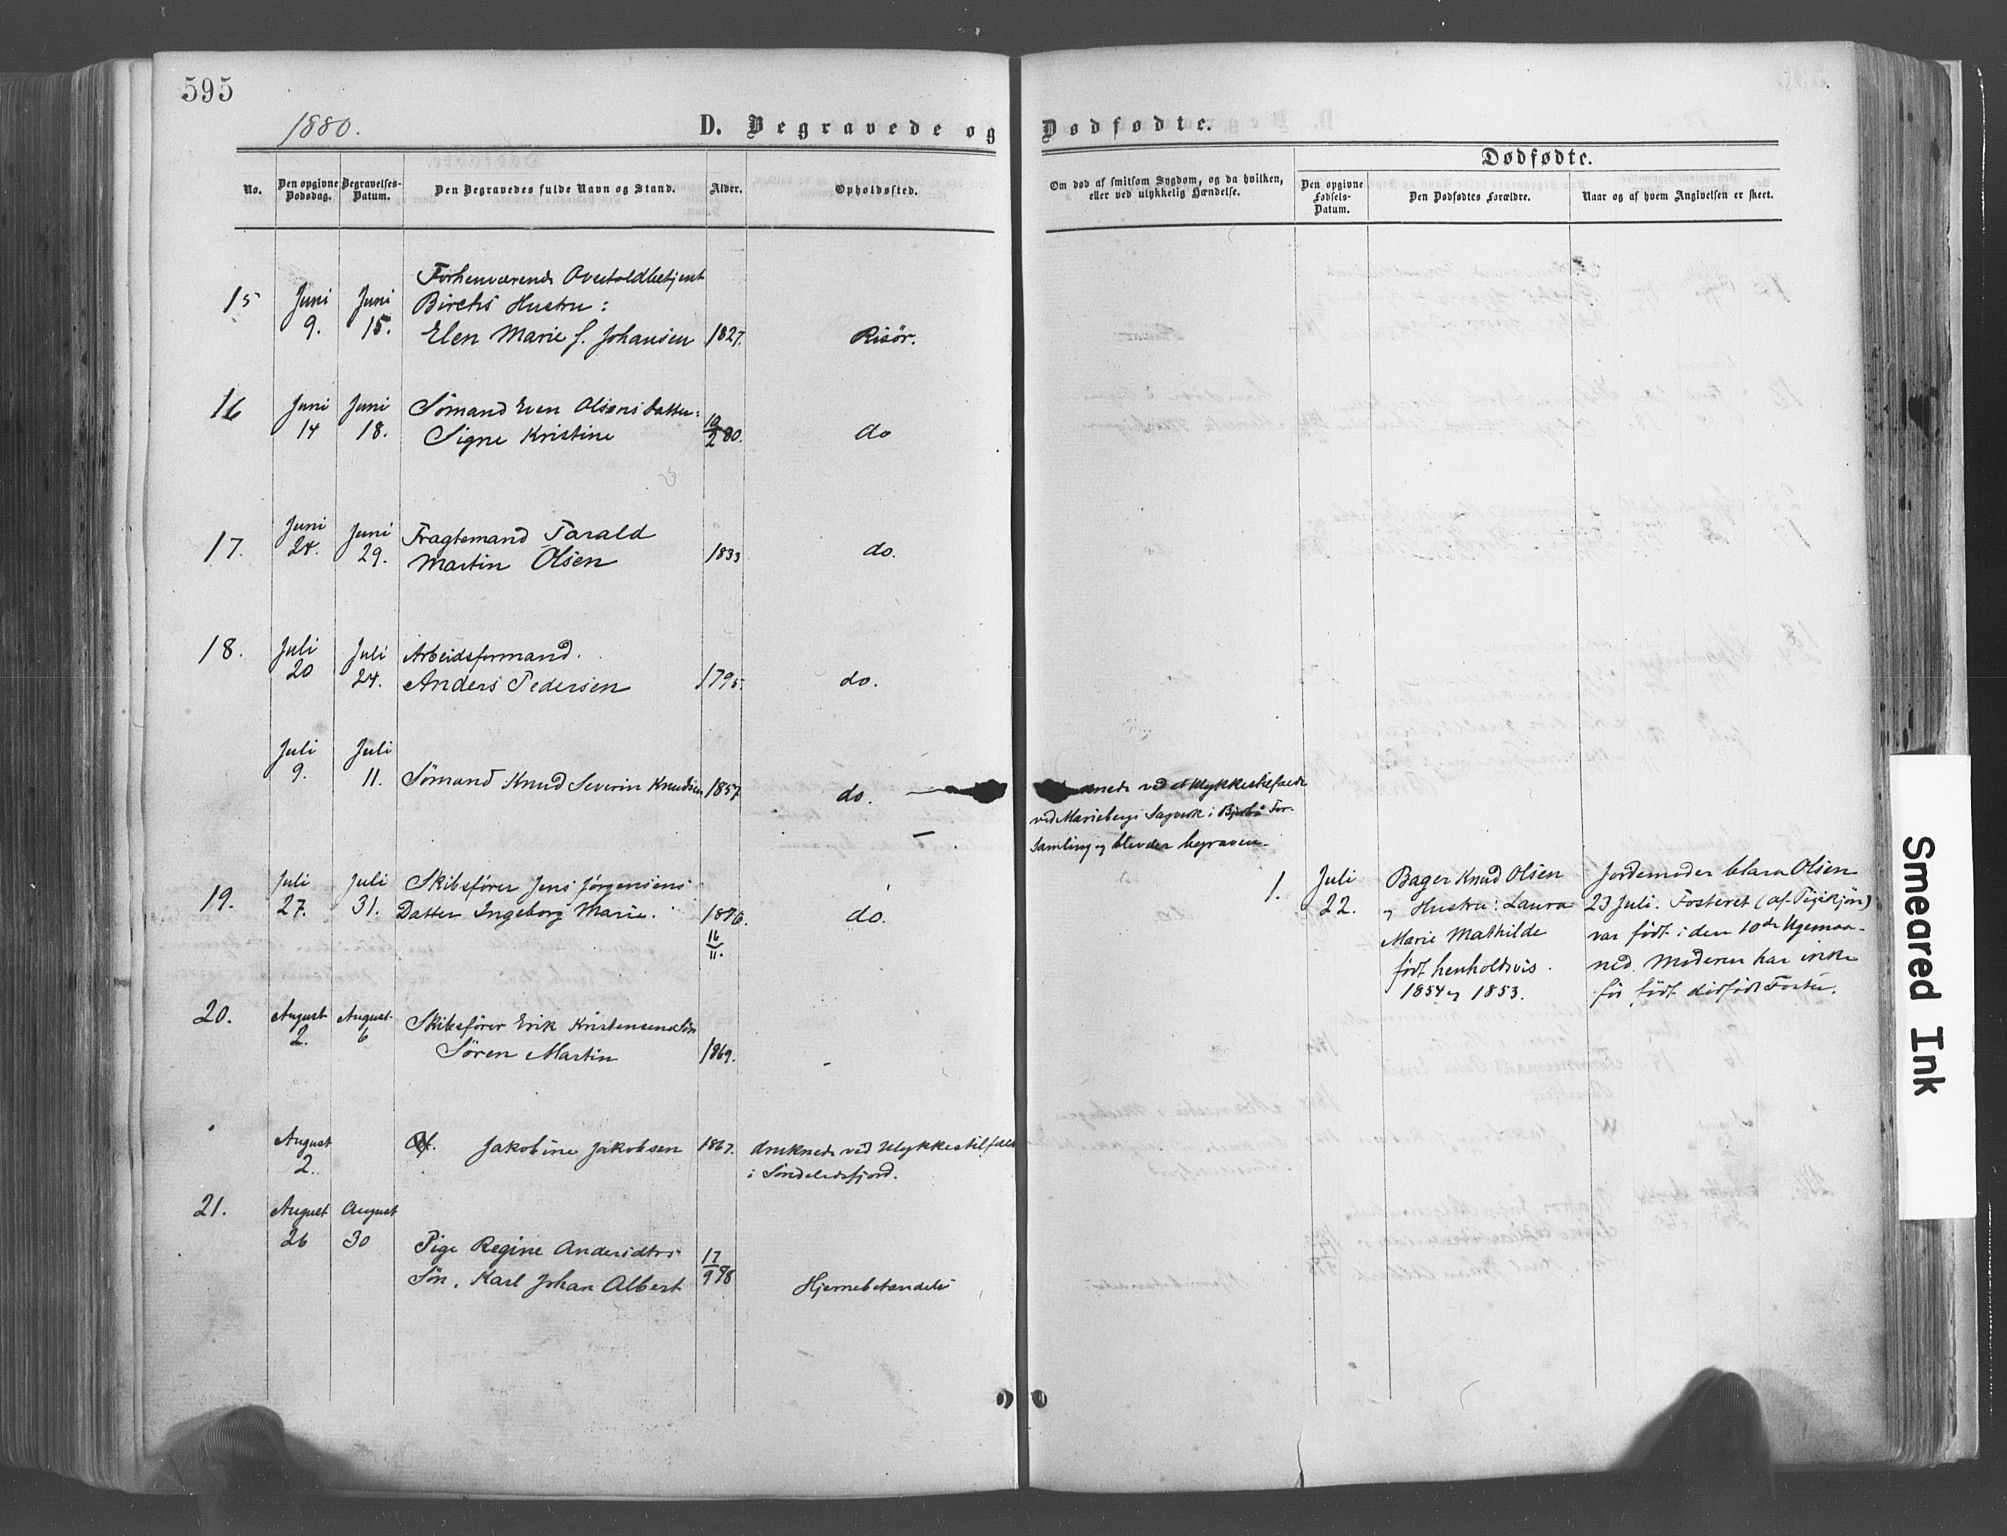 595
1880.
D. Begravede og Dødfødte.
Dødfødte.
No.
Den opgivne Dødsdag.
Begravelses-Datum.
Den Begravedes fulde Navn og Stand.
Alder.
Opholdssted.
Om død af smitsom Sygdom, og da hvilken,
eller ved ulykkelig Hændelse.
Den opgivne Fødsels-Datum.
Den Dødfødtes Forældre.
Naar og af hvem Angivelsen er skeet.
15 Juni 9. Juni 15. Forhenværende Overtoldbetjent
Birchs Hustru:
Elen Marie f. Johansen 1827. Risör.
16 Juni 14 Juni 18. Sömand Even Olsens Datter:
Signe Kristine 10/2 80. do
17. Juni 24. Juni 29. Fragtemand Tarald
Martin Olsen 1833 do.
18. Juli 20 Juli 24. Arbeidsformand.
Anders Pedersen 1795. do.
Juli 9. Juli 11. Sömand Knud Severin Knudsen 1857 do.
ved et Ulykkestilfælde
ved Mariebergs Sagverk i For-
samling og blev der begraven.
19. Juli 27. Juli 31. Skibsfører Jens Jörgensens
Datter Ingeborg Marie. 16/11. do.
1. Juli 22. Bager Knud Olsen
og Hustru: Laura
Marie Mathilde
født henholdsvis
1854 og 1853.
Jordemoder Clara Olsen
23 Juli. Fosteret (af Pigekjön)
var født i den 10de Ugemaa-
ned. Moderen har ikke
før født dödfödt Foster.
20. August 2. August 6 Skibsfører Erik Kristensens Sön
Sören Martin 1869.
August 2. Jakobine Jakobsen 1867. druknede ved Ulykkestilfælde
i Söndeledsfjord.
21. August 26 August 30 Pige Regine Andersdtrs
Sön, Karl Johan Albert 17/9 78 Hjernebetændelse
Smeared Ink